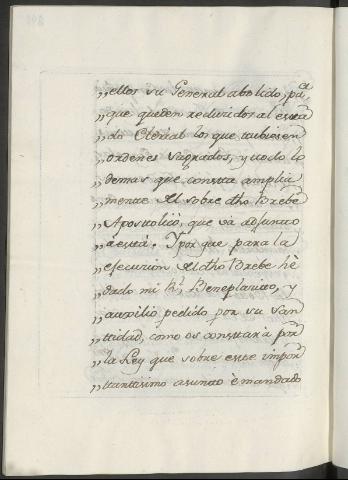 „ ellos su General abolido, pa
„ que queden reducidos al esta
„ do Clerical los que tubiesen
„ ordenes sagrados, y todo lo
„ demas que consta amplia
„ mente del sobre dho Brebe
„ Apostolico, que va adjunto
„ á esta. Y por que para la
„ efecucion del dho Brebe hè
„ dado mi Rl. Beneplacito, y
„ auxilio pedido por su San
„ tidad, como os constará por
„ la Ley que sobre este impor
„ tantisimo asunto è mandado